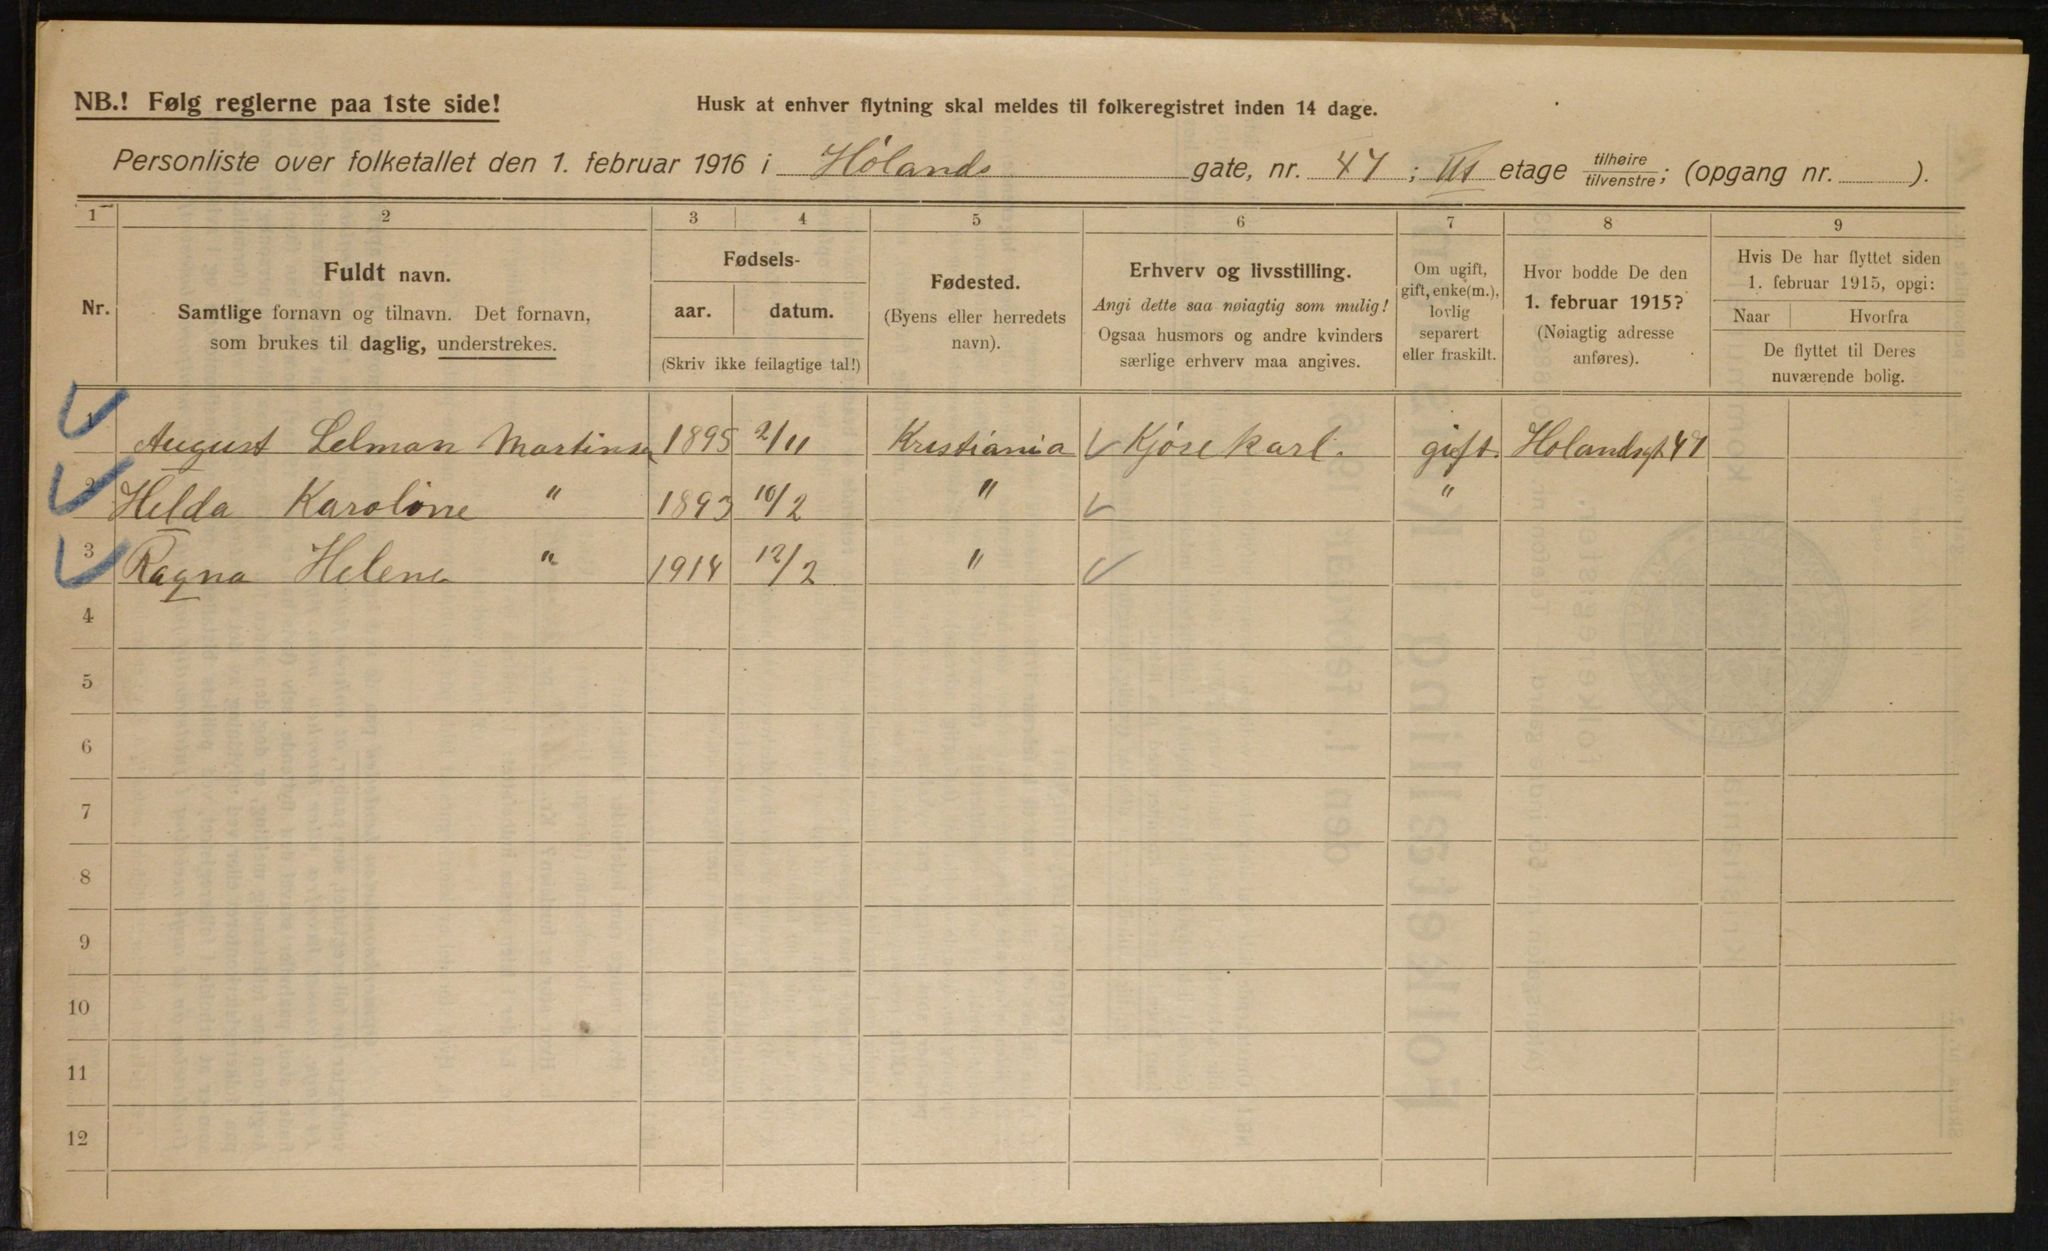 NB.! Følg reglerne paa 1ste side!
Husk at enhver flytning skal meldes til folkeregistret inden 14 dage.
Personliste over folketallet den 1. februar 1916 i Hølands gate, nr. 47; III etage tilhøire/tilvenstre; (opgang nr. ).
1 2 3 4 5 6 7 8 9
Nr.
Fuldt navn.
Samtlige fornavn og tilnavn. Det fornavn,
som brukes til daglig, understrekes.
Fødsels-
aar. datum.
(Skriv ikke feilagtige tal!)
Fødested.
(Byens eller herredets
navn).
Erhverv og livsstilling.
Angi dette saa nøiagtig som mulig!
Ogsaa husmors og andre kvinders
særlige erhverv maa angives.
Om ugift,
gift, enke(m.),
lovlig
separert
eller fraskilt.
Hvor bodde De den
1. februar 1915?
(Nøiagtig adresse
anføres).
Hvis De har flyttet siden
1. februar 1915, opgi:
Naar Hvorfra
De flyttet til Deres
nuværende bolig.
1 August Selman Martinsen 1895 2/11 Kristiania Kjørekarl. gift. Hølandsgt 47
2 Hilda Karoline " 1893 10/2 " "
3 Ragna Helene " 1914 12/2 "
4
5
6
7
8
9
10
11
12